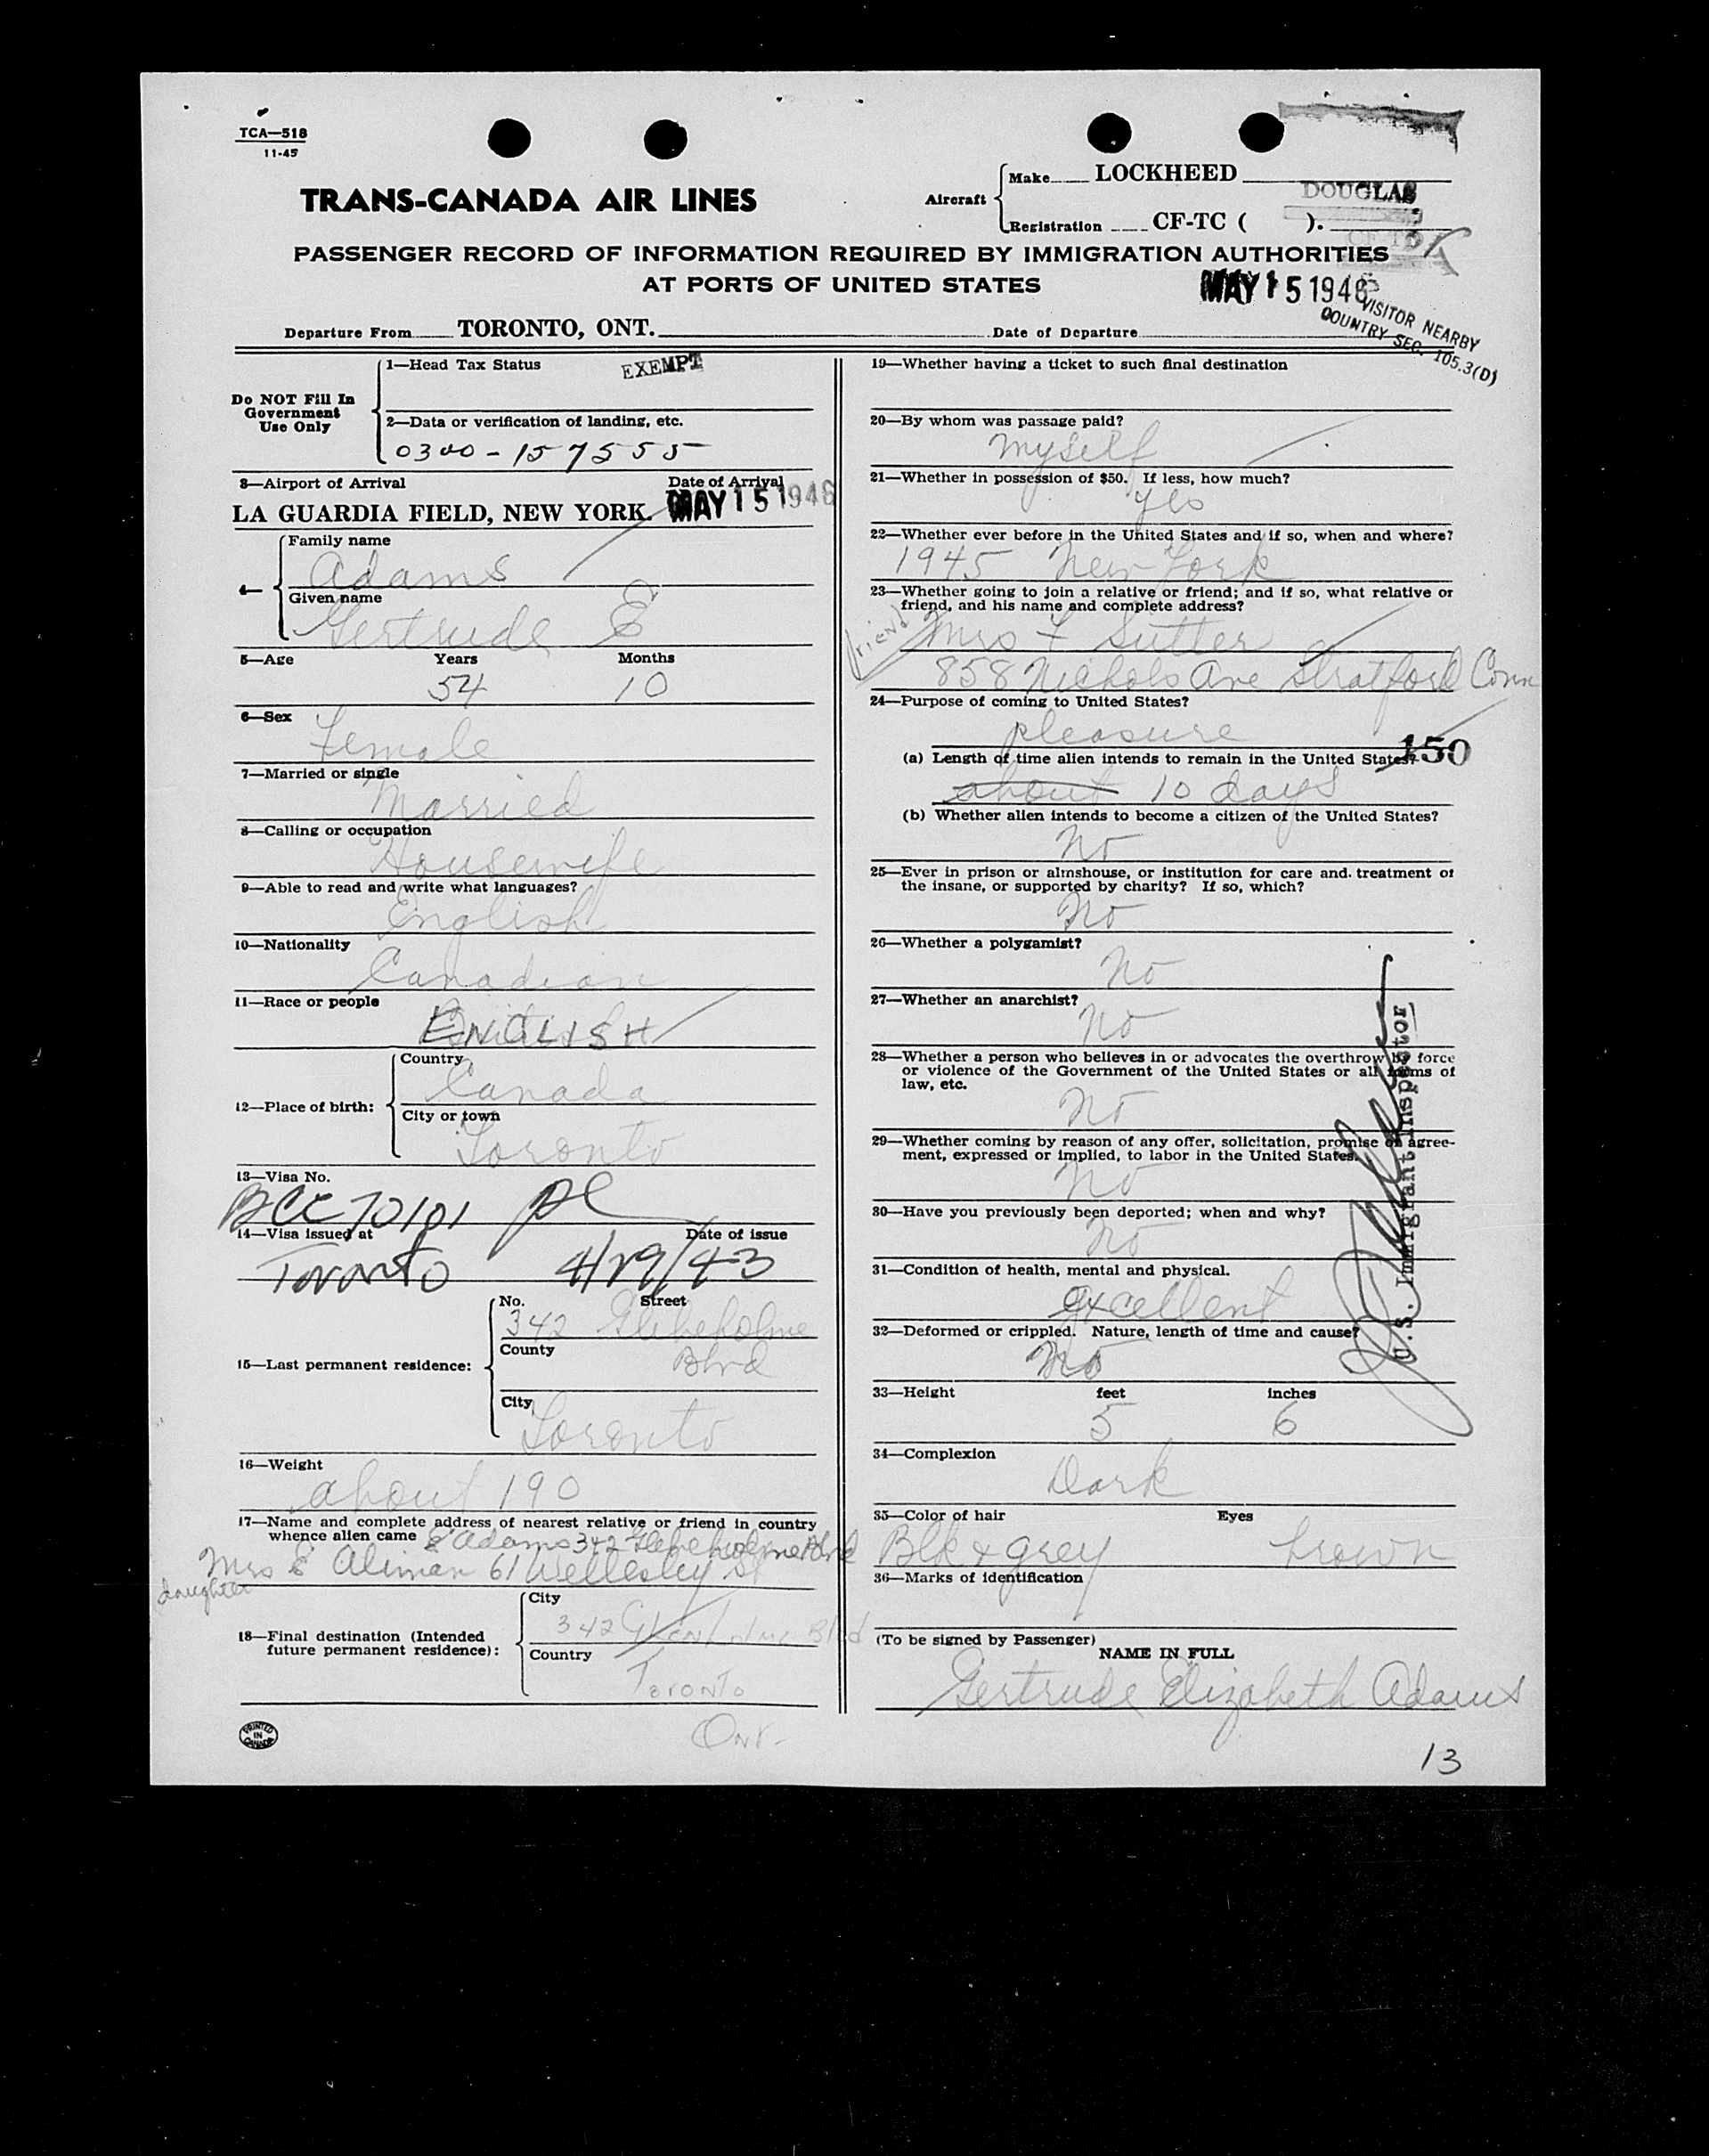 TCA—518
11-45
TRANS-CANADA AIR LINES
Aircraft
Make LOCKHEED
DOUGLAS
Registration CF-TC ( ).
PASSENGER RECORD OF INFORMATION REQUIRED BY IMMIGRATION AUTHORITIES
AT PORTS OF UNITED STATES
MAY 15 1946
VISITOR NEARBY
COUNTRY SEC. 105.3(D)
Departure From TORONTO, ONT. Date of Departure
Do NOT Fill In
Government
Use Only
1—Head Tax Status EXEMPT
2—Data or verification of landing, etc.
0300-157555
3—Airport of Arrival Date of Arrival
LA GUARDIA FIELD, NEW YORK. MAY 15 1946
4—
Family name
Adams
Given name
Gertrude E
5—Age Years Months
54 10
6—Sex
Female
7—Married or single
Married
8—Calling or occupation
Housewife
9—Able to read and write what languages?
English
10—Nationality
Canadian
11—Race or people
ENGLISH
12—Place of birth:
Country
Canada
City or town
Toronto
13—Visa No.
BCC 70101
14—Visa issued at Date of issue
Toronto 4/29/43
15—Last permanent residence:
No. Street
342 Glebeholme
County
Blvd
City
Toronto
16—Weight
about 190
17—Name and complete address of nearest relative or friend in country
whence alien came E Adams 342 Glebeholme Blvd
Mrs E Aliman 61 Wellesley St
daughter
18—Final destination (Intended
future permanent residence):
City
342 Blvd
Country
Toronto
Ont.
PRINTED
IN
CANADA
19—Whether having a ticket to such final destination
20—By whom was passage paid?
myself
21—Whether in possession of $50. If less, how much?
yes
22—Whether ever before in the United States and if so, when and where?
1945 New York
23—Whether going to join a relative or friend; and if so, what relative or
friend, and his name and complete address?
friend Mrs F Sutter
858 Nichols Ave Stratford Conn
24—Purpose of coming to United States?
pleasure
(a) Length of time alien intends to remain in the United States? 150
about 10 days
(b) Whether alien intends to become a citizen of the United States?
No
25—Ever in prison or almshouse, or institution for care and. treatment of
the insane, or supported by charity? If so, which?
No
26—Whether a polygamist?
No
27—Whether an anarchist?
No
28—Whether a person who believes in or advocates the overthrow by force
or violence of the Government of the United States or all forms of
law, etc.
No
29—Whether coming by reason of any offer, solicitation, promise or agree-
ment, expressed or implied, to labor in the United States.
No
30—Have you previously been deported; when and why?
No
31—Condition of health, mental and physical.
excellent
32—Deformed or crippled. Nature, length of time and cause?
No
U.S. Immigrant Inspector
33—Height feet inches
5 6
34—Complexion
Dark
35—Color of hair Eyes
Blk & grey brown
36—Marks of identification
(To be signed by Passenger)
NAME IN FULL
Gertrude Elizabeth Adams
13